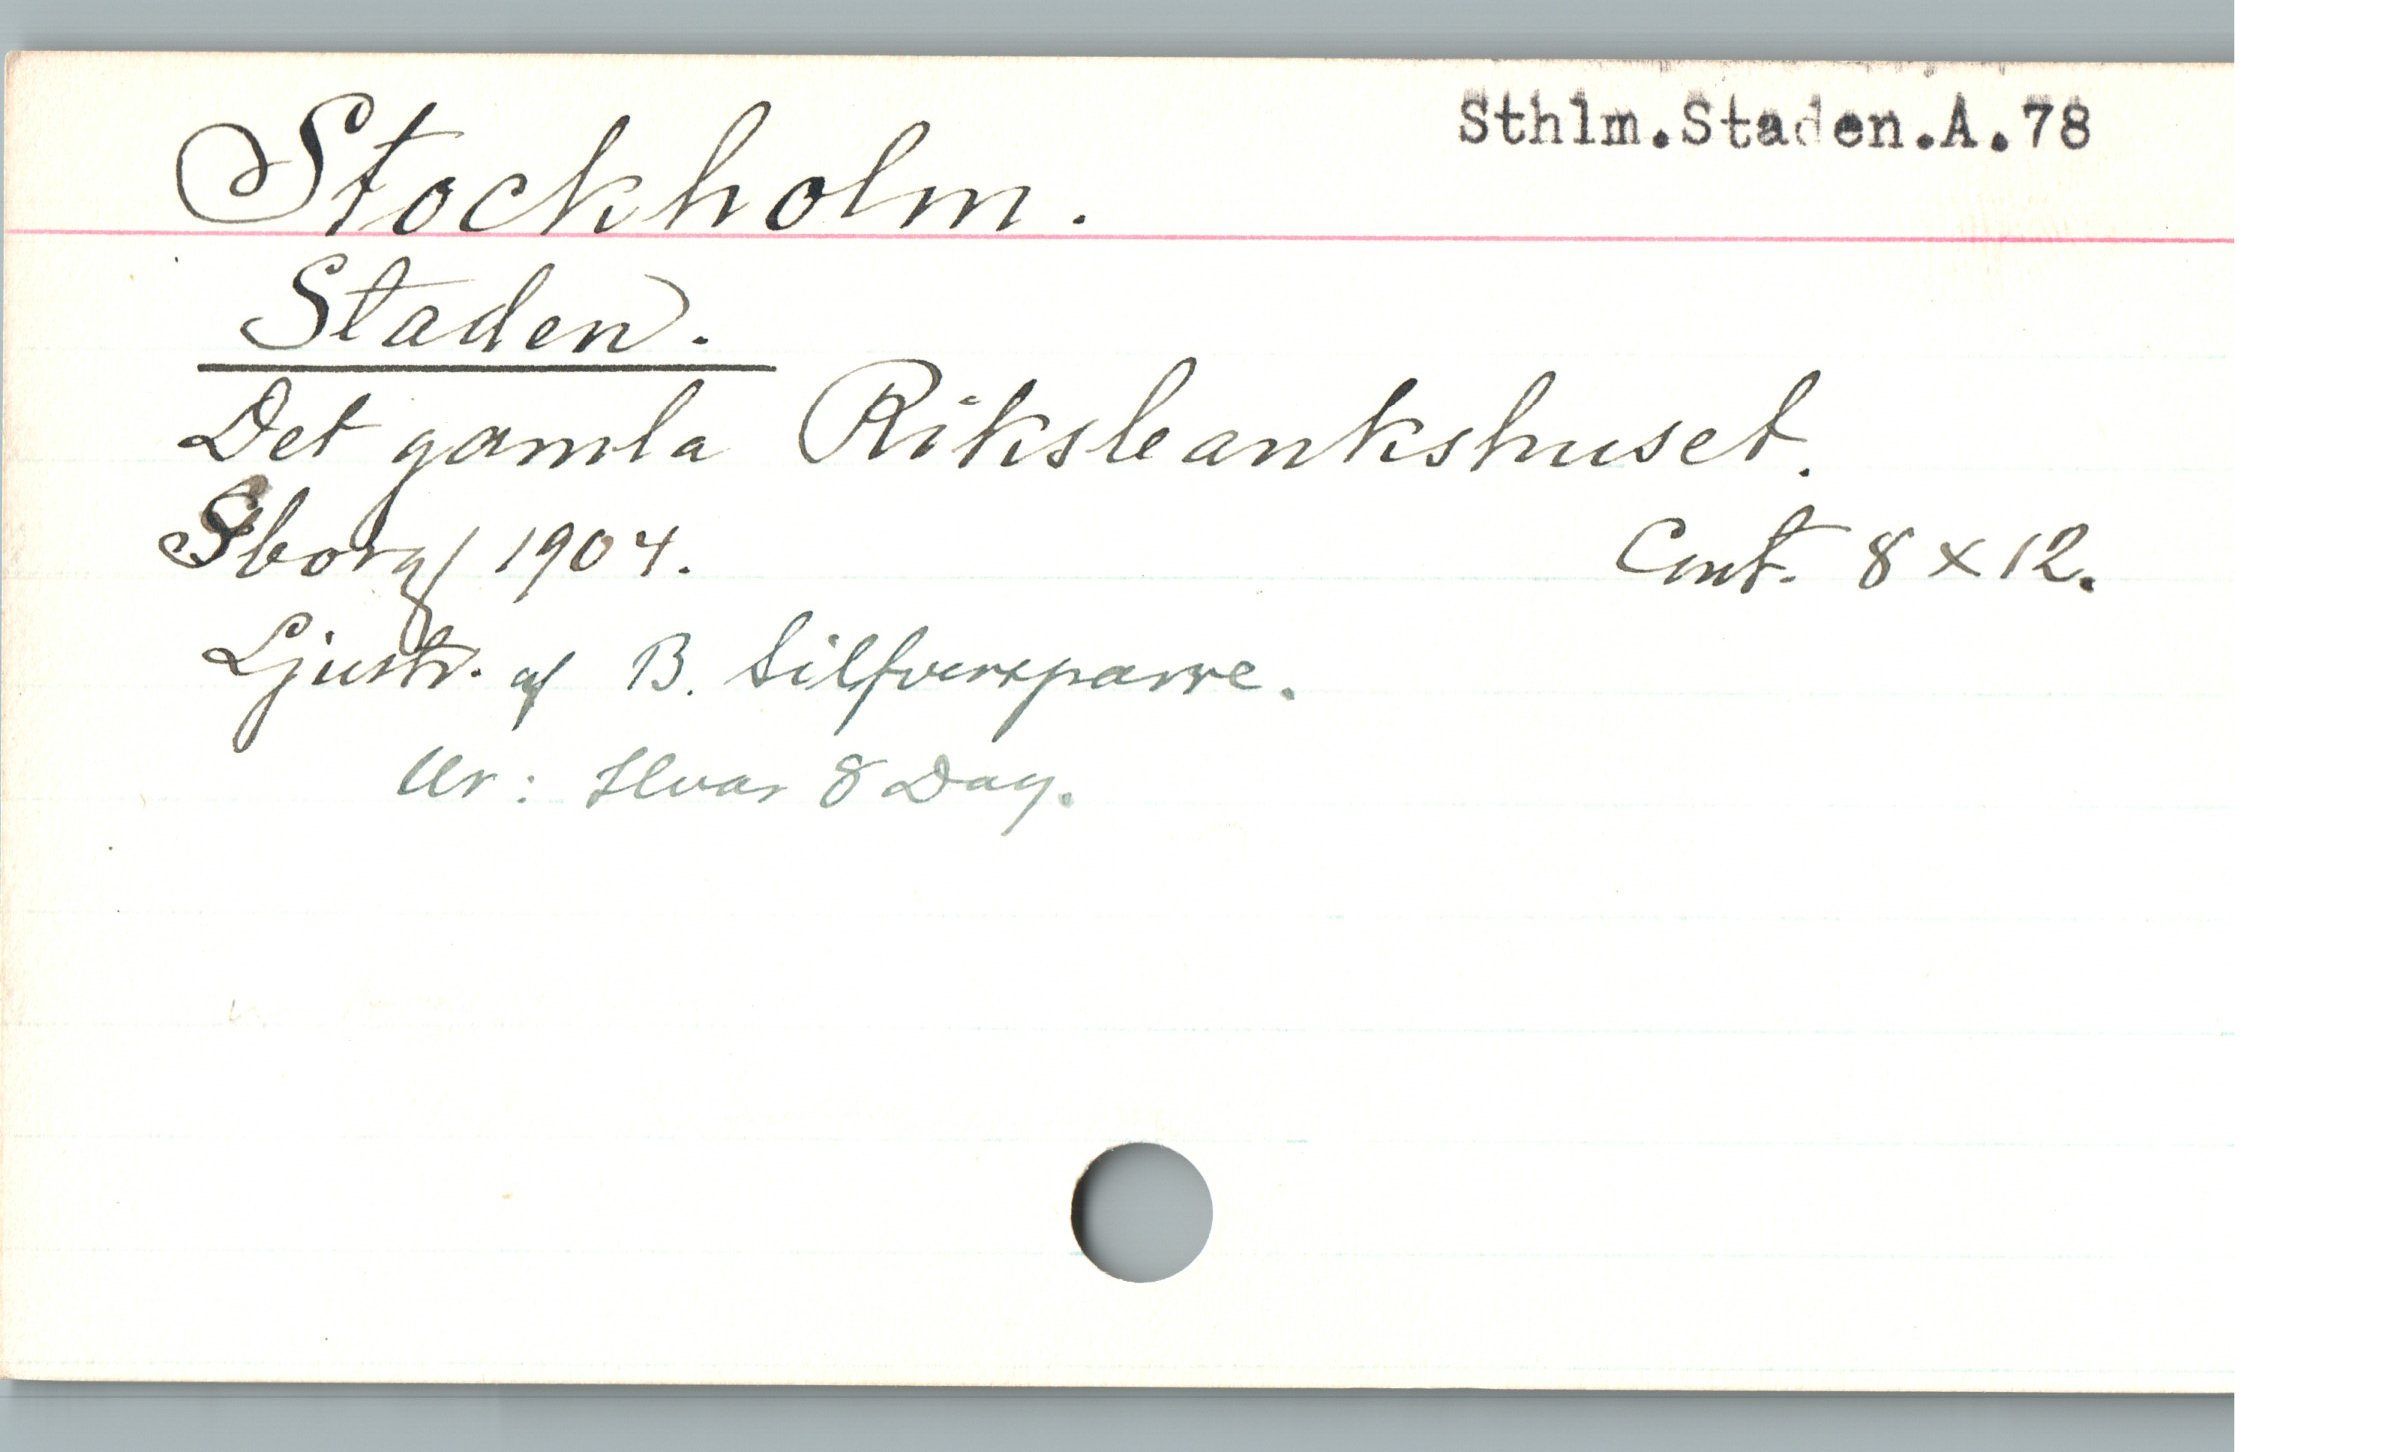 Sthlm.Staden.A.78
Stockholm.
Staden.
Det gamla Riksbankshuset.
Sborg/ 1904. Cont. 8 x 12.
Ljustr. af B. Silfversparre.
Ur: Hvar 8 Dag.